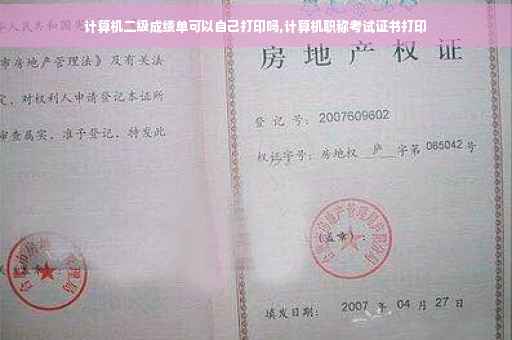 计算机二级成绩单可以自己打印吗,计算机职称考试证书打印
华人民共和国宪
市房地产管理法》及有关法
定,对权利人申请登记本证所
审查属实,准予登记,特发此
房地产权证
登记号:2007609602
权证字号:房地权 庐 字第 065042 号
(盖章):
填发日期: 2007 年 04 月 27 日